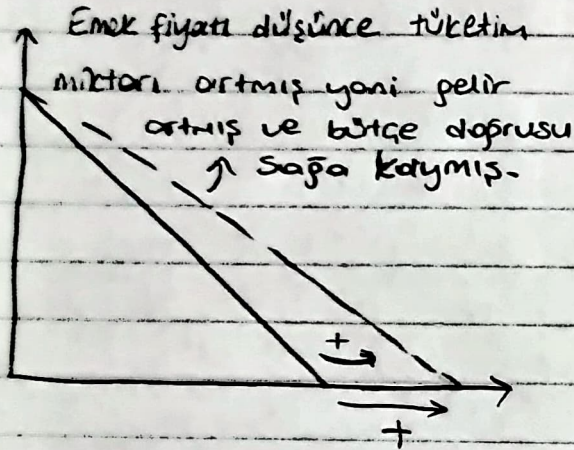 Emek fiyatı düşünce tüketim
miktarı artmış yani gelir
artmış ve bütçe doğrusu
↗ sağa kaymış.
+
+